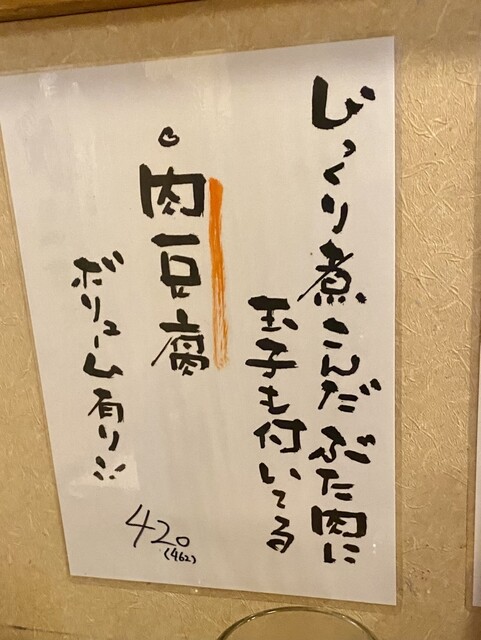 じっくり煮こんだぶた肉に
玉子も付いてる
肉豆腐
ボリューム有り!!
420
(462)